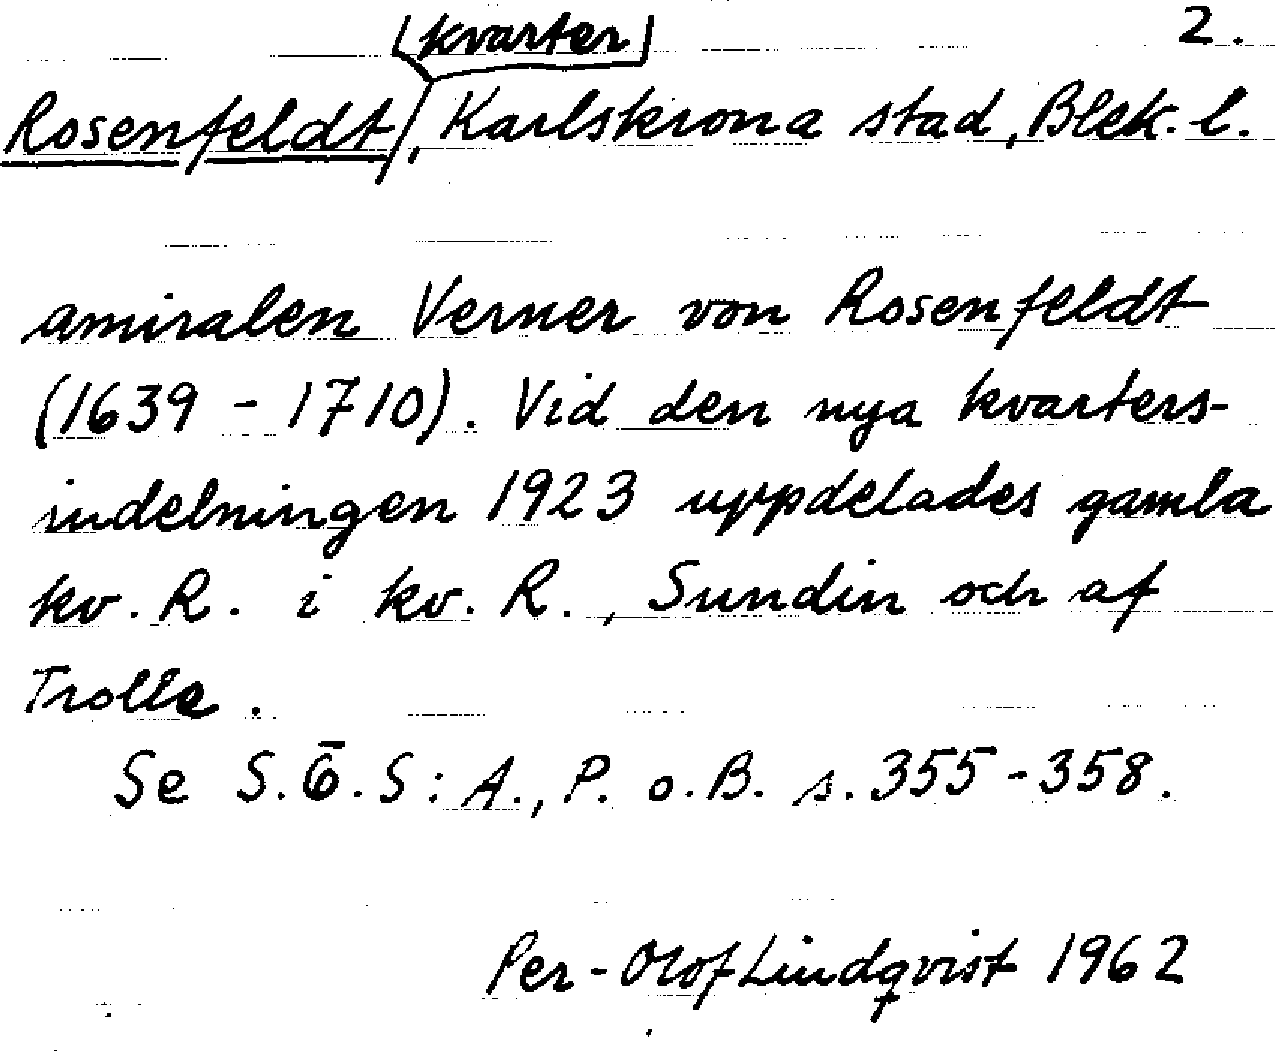 kvarter 2.
Rosenfeldt, Karlskrona stad, Blek. l.
amiralen Verner von Rosenfeldt
(1639 - 1710). Vid den nya kvarters-
indelningen 1923 uppdelades gamla
kv. R. i kv. R., Sundin och af
Trolle.
Se S.Ö.S: A., P. o. B. s. 355-358.
Per-Olof Lindqvist 1962